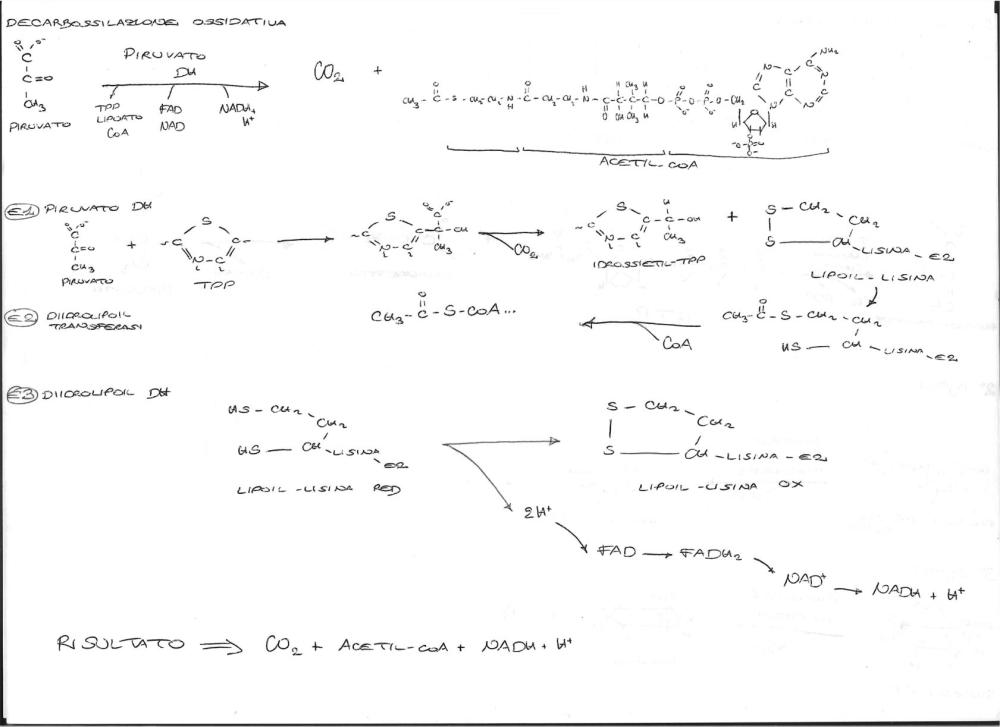 DECARBOSSILAZIONE OSSIDATIVA
PIRUVATO
DH
TPP
LIPOATO
CoA
FAD
NAD
NADH+
H+
CO2 +
C=O
CH3
PIRUVATO
ACETIL-CoA
E1 PIRUVATO DH
PIRUVATO
+
TPP
CO2
IDROSSIETIL-TPP
+
S - CH2
CH2
S
CH - LISINA - E2
LIPOIL - LISINA
E2 DIIDROLIPOIL
TRANSFERASI
CH3 - C - S - CoA...
O
CoA
CH3 - C - S - CH2 - CH2
O
HS — CH - LISINA - E2
E3 DIIDROLIPOIL DH
HS - CH2
CH2
HS — CH - LISINA
E2
LIPOIL - LISINA RED
S - CH2
CH2
S — CH - LISINA - E2
LIPOIL - LISINA OX
2H+
FAD → FADH2
NAD+ → NADH + H+
RISULTATO ⇒ CO2 + ACETIL-CoA + NADH + H+